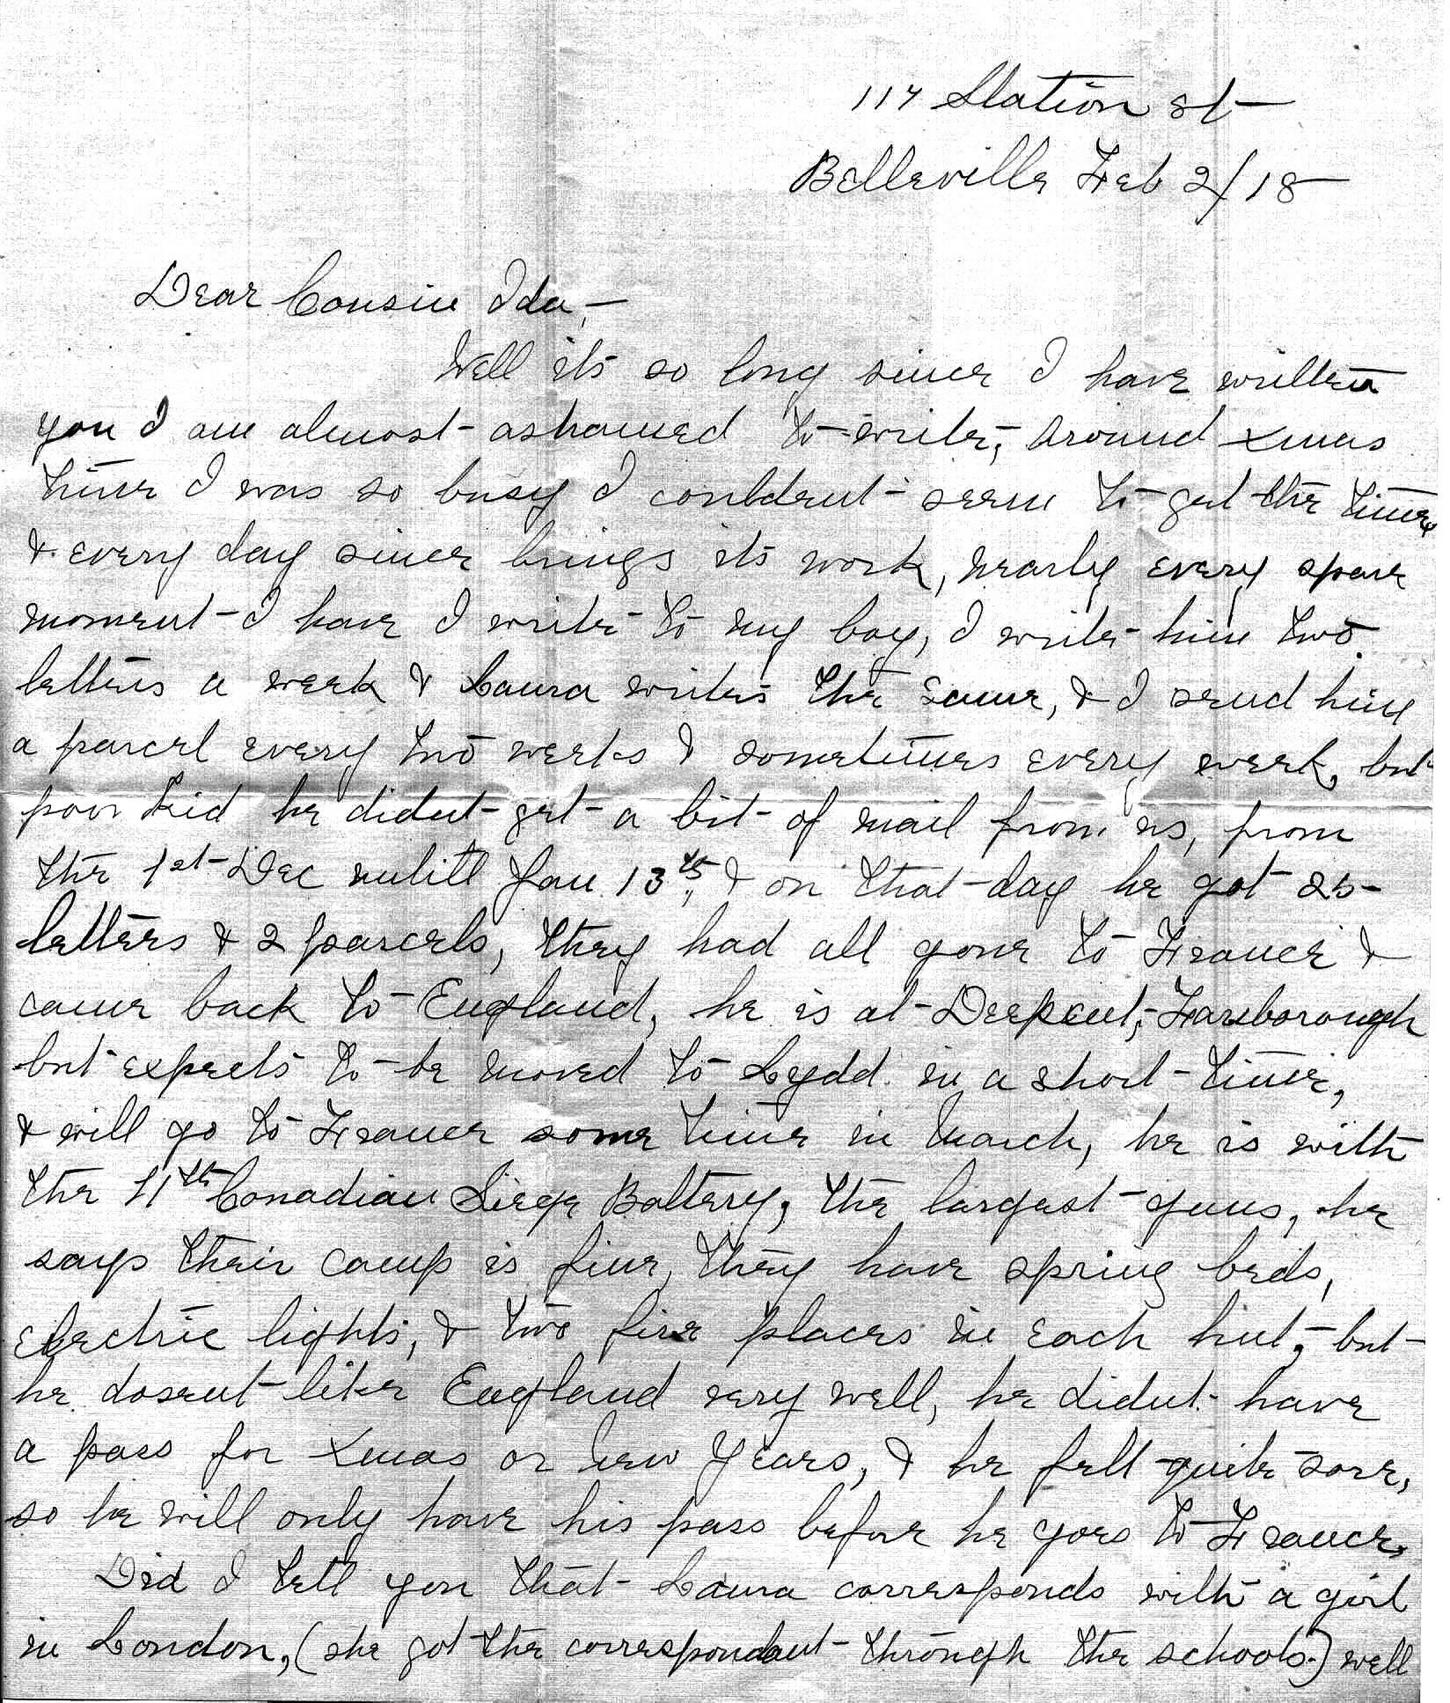 117 Station St
Belleville Feb 2/18
Dear Cousin Ida,—
Well its so long since I have written
you I am almost ashamed to write, around Xmas
time I was so busy I couldent seem to get the time,
& every day since brings its work, nearly every spare
moment I have I write to my boy, I write him two
letters a week & Laura writes the same, & I send him
a parcel every two weeks & sometimes every week, but
poor kid he didnt get a bit of mail from us, from
the 1st Dec untill Jan 13th, & on that day he got 25
letters & 2 parcels, they had all gone to France &
came back to England, he is at Deepcut, Farnborough
but expects to be moved to Lydd in a short time,
& will go to France some time in March, he is with
the 11th Canadian Siege Battery, the largest guns, he
says their camp is fine, they have spring beds,
electric lights, & two fire places in each hut, but
he dosent like England very well, he didnt have
a pass for Xmas or New Years, & he felt quite sore,
so he will only have his pass before he goes to France,
Did I tell you that Laura corresponds with a girl
in London, (she got the correspondant through the schools.) well